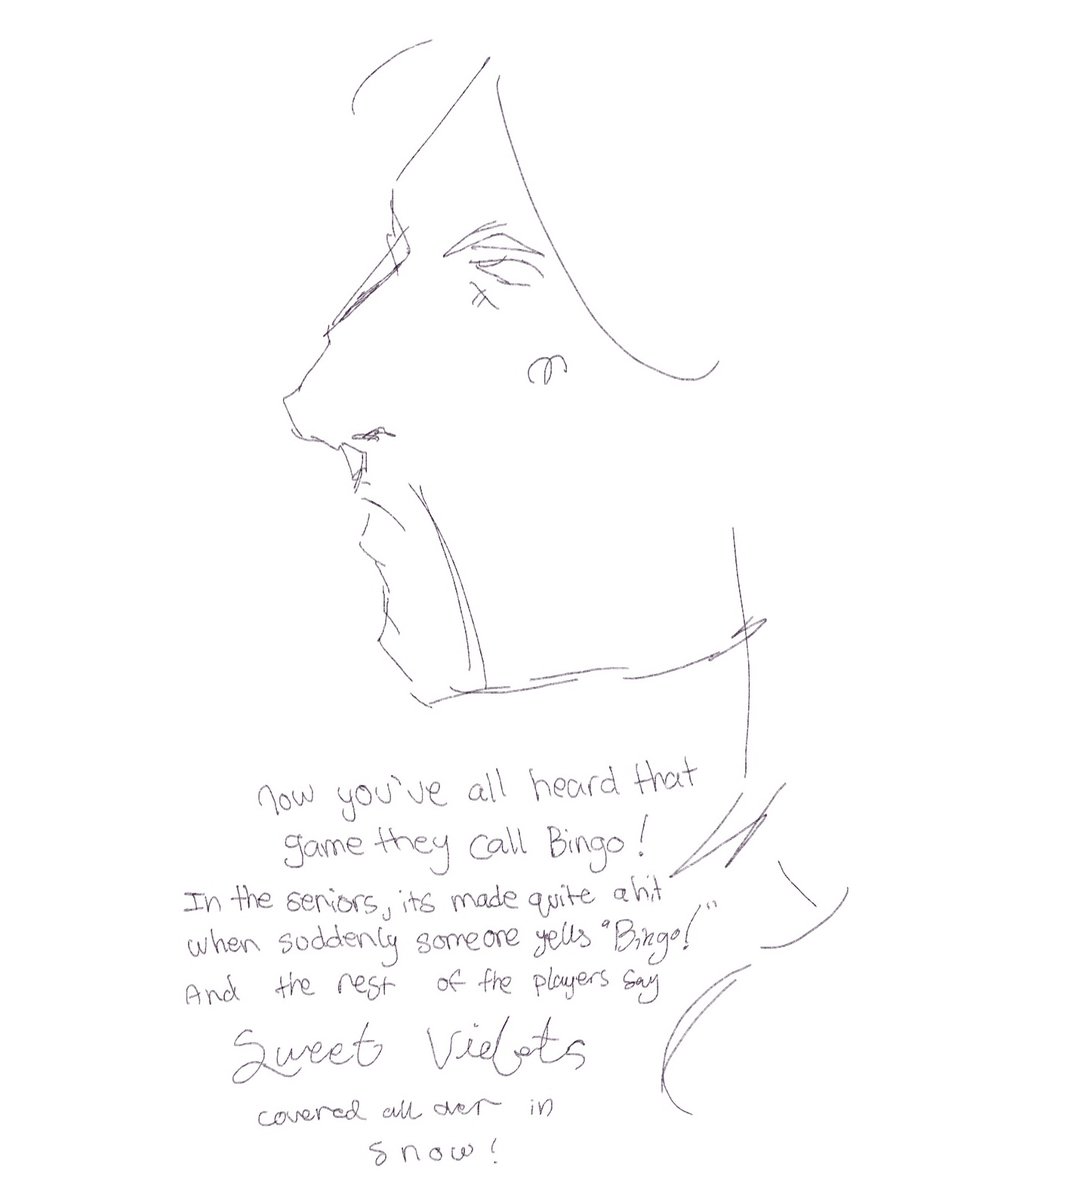 Now you've all heard that
game they call Bingo!
In the seniors, its made quite a hit
when suddenly someone yells "Bingo!"
And the rest of the players say
Sweet Violets
covered all over in
snow!